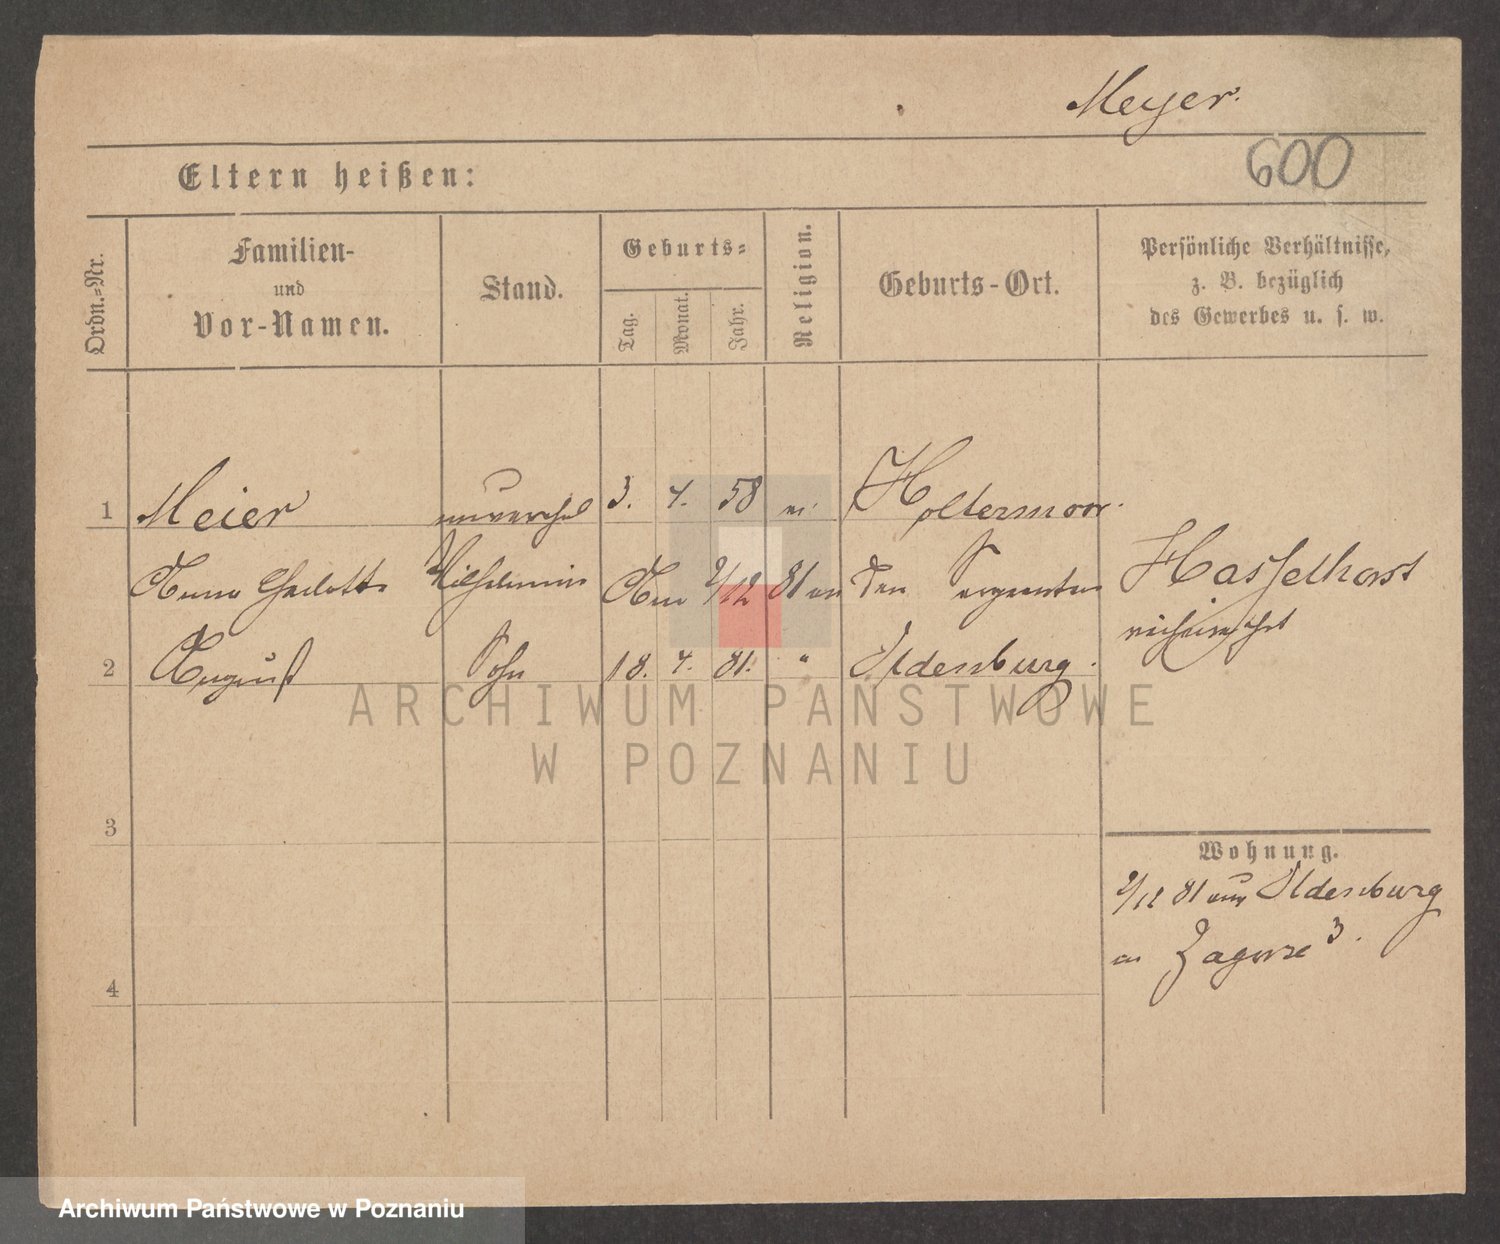 Meyer.
600
Eltern heißen:
Ordn.-Nr.
Familien-
und
Vor-Namen.
Stand.
Geburts-
Tag.
Monat.
Jahr.
Religion.
Geburts-Ort.
Persönliche Verhältnisse,
z. B. bezüglich
des Gewerbes u. s. w.
1 Meier unverehel 3. 4. 58 Holtermoor.
Wilhelmine 2/12 81 an den Sergeanten
Hasselhorst
verheirathet
2 August Sohn 18. 4. 81. " Oldenburg.
ARCHIWUM PAŃSTWOWE
W POZNANIU
3
Wohnung.
2/12 81 aus Oldenburg
Zagorze 3.
4
Archiwum Państwowe w Poznaniu